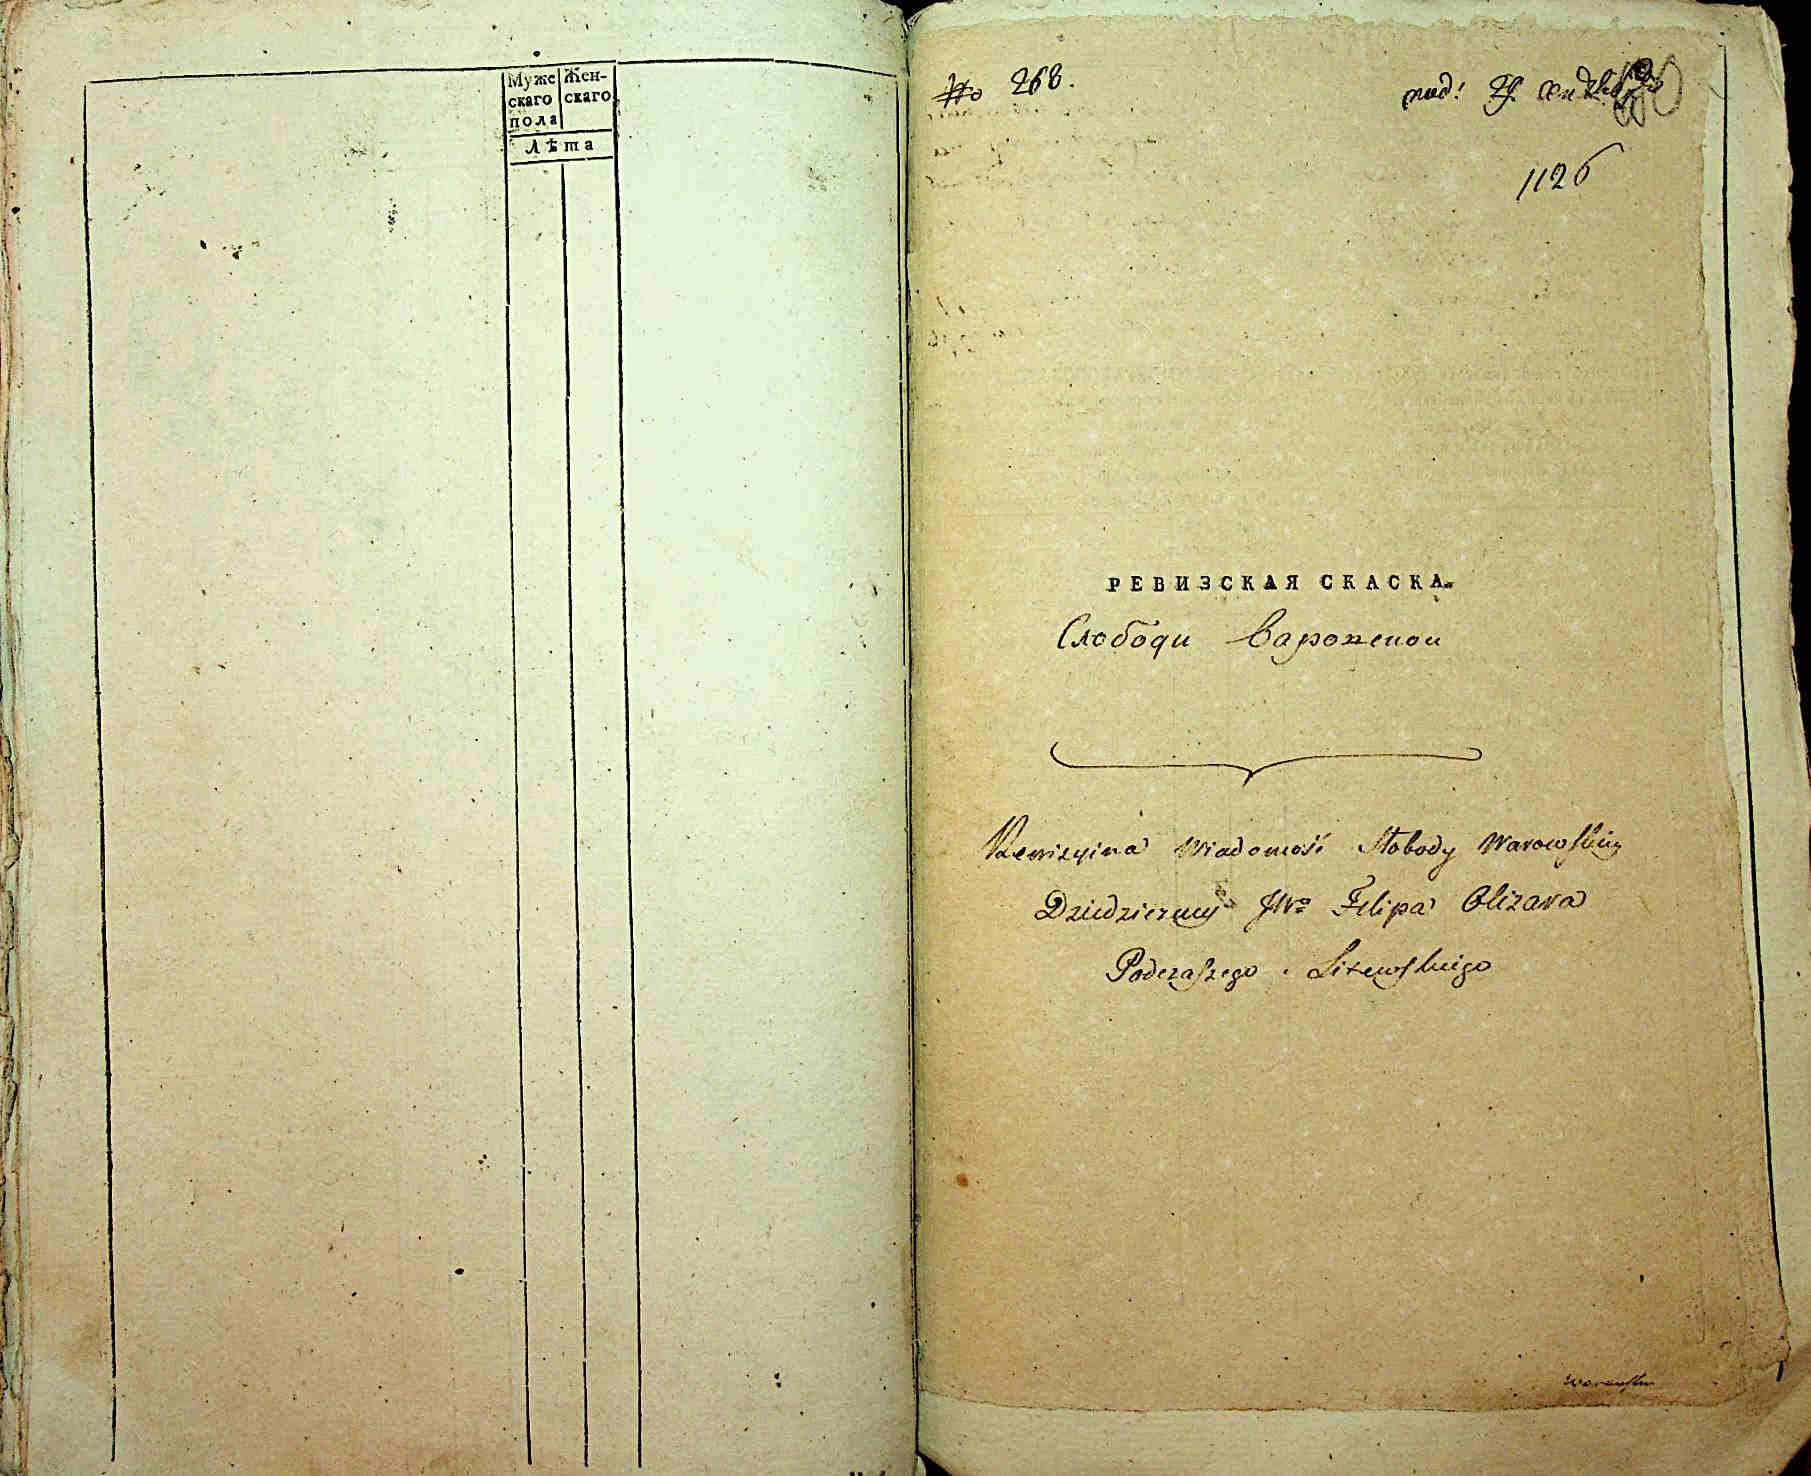 Муже Жен-
скаго скаго
пола
Лѣта
No 268.
1126
РЕВИЗСКАЯ СКАСКА.
Слободи
Rewizyina Wiadomość Słobody Warowskiey
Dziedziczney JWo Filipa Olizara
Podczaszego Litewskiego